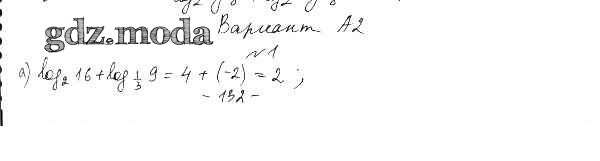 gdz.moda Вариант А2
№1
а) log₂ 16 + log_{1/3} 9 = 4 + (-2) = 2 ;
- 132 -